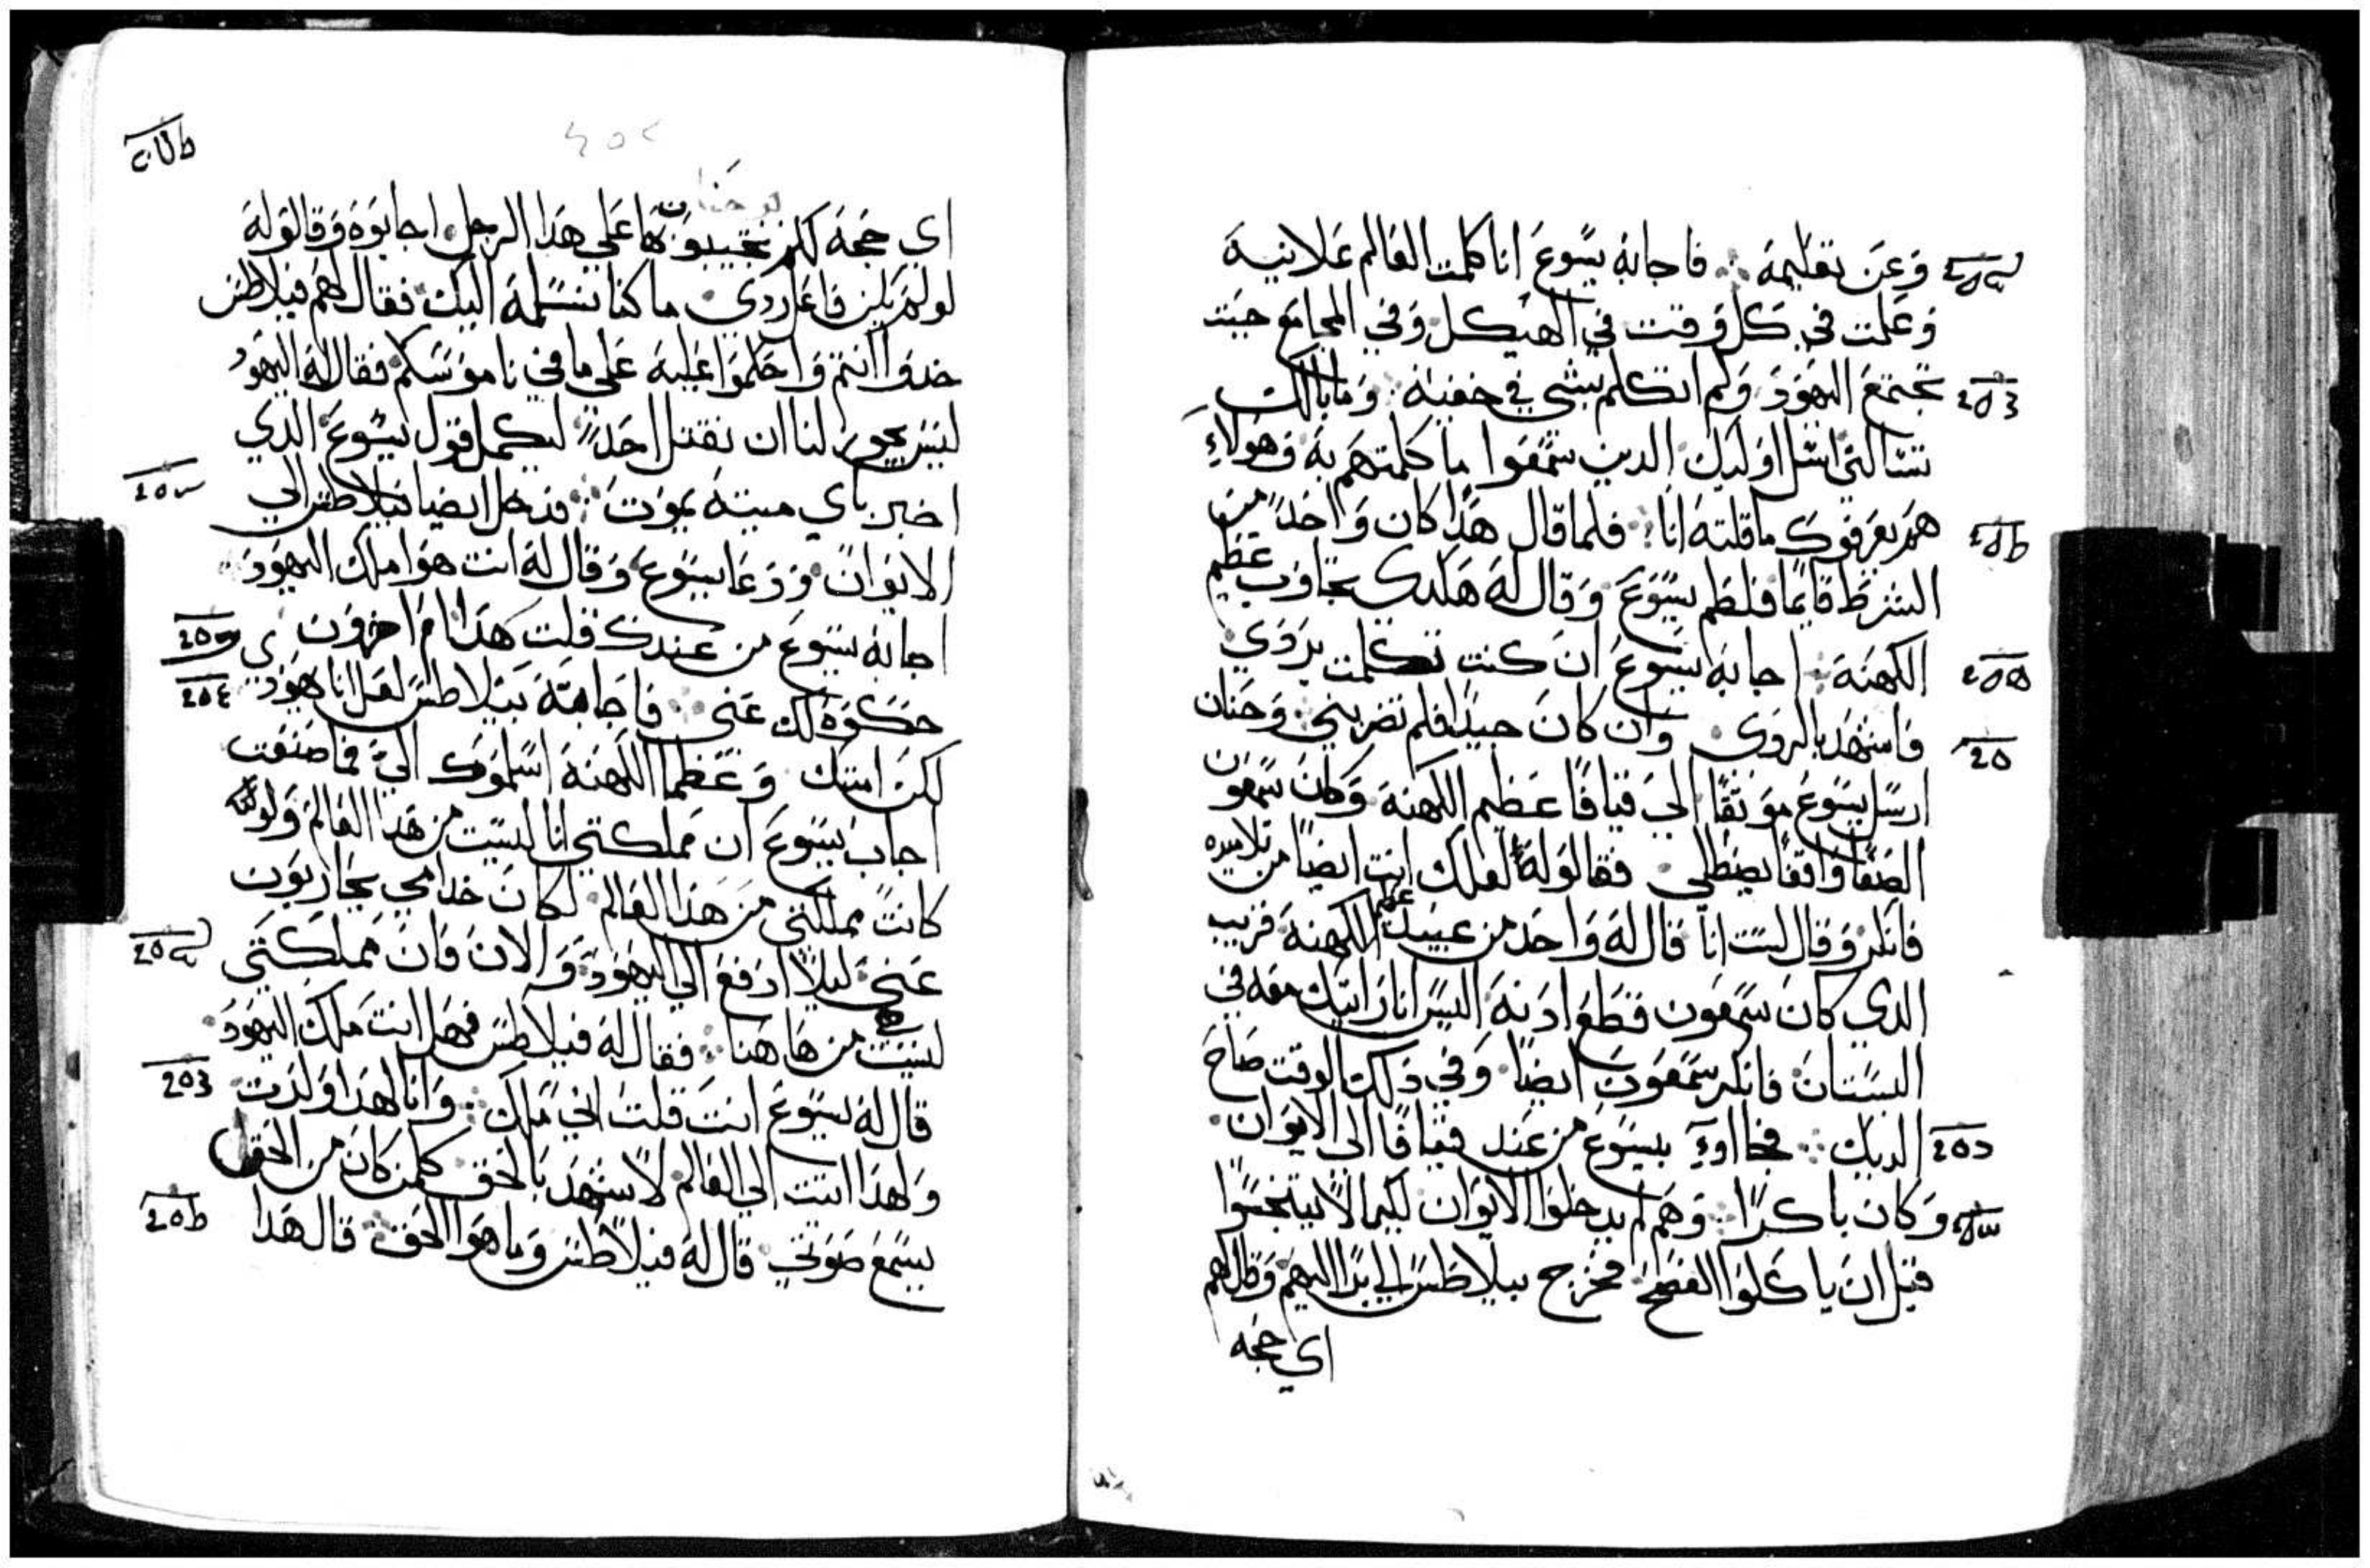 وعن تعليمه ∴ فاجابه يسوع انا كلمت العالم علانيه
وعلمت في كل وقت في الهيكل وفي المجامع حيت
تجتمع اليهود ولم اتكلم بشي في خفيه ∴ وما بالك
تسالني اسل اوليك الدين سمعوا ما كلمتهم به وهولاء
هم يعرفوك ما قلته انا ∴ فلما قال هدا كان واحداً من
الشرط قايماً فلطم يسوع وقال له هكدى تجاوب عظيم
الكهنه ∴ اجابه يسوع ان كنت تكلمت بردي
فاشهد بالردى وان كان جيداً فلم تضربني ∴ وحنان
ارسل يسوع موتقاً الي قيافا عظيم الكهنه وكان سمعون
الصفا واقفاً يصطلي فقالوله لعلك انت ايضاً من تلاميده
فانكر وقال لست انا قال له واحد من عبيد عظيم الكهنه قريب
الدي كان سمعون قطع ادنه اليس انا رايتك معه في
البستان فانكر سمعون ايضاً وفي دلك الوقت صاح
الديك ∴ فجااوء بيسوع من عند قيافا الى الايوان
وكان باكراً ∴ وهم لم يدخلوا الايوان لكيما لا يتنجسوا
قبل ان ياكلوا الفصح فخرج بيلاطس الي برا اليهم وقال لهم
اي حجه
يوحنا
اي حجه لكم تجيبونها علي هدا الرجل اجابوه وقالوله
لو لم يكن فاعل ردي ما كنا نسلمه اليك فقال لهم فيلاطس
خدوا انتم واحكموا عليه على ما في ناموسكم فقال له اليهود
ليس يجوز لنا ان نقتل احداً ليكمل قول يسوع الدي
اخبر باي ميته يموت ∴ فدخل ايضا فيلاطس الي
الايوان ودعا يسوع وقال له انت هو املك اليهود
اجابه يسوع من عندك قلت هدا ام اخرون
حكوه لك عني ∴ فاجابه بيلاطس لعل انا يهودي
لكن امتك وعظما الكهنه اسلموك الي فما صنعت
اجاب يسوع ان مملكتي انا ليست من هدا العالم ولو
كانت مملكتي من هدا العالم لكان خدامي يحاربون
عني ليلا ادفع الي اليهود والان فان مملكتي
ليست من هاهنا ∴ فقال له فيلاطس فهل انت ملك اليهود
قال له يسوع انت قلت اني ملك ∴ وانا لهدا ولدت
ولهدا اتيت الي العالم لاشهد بالحق كلمن كان من الحق
يسمع صوتي قال له فيلاطس وما هو الحق ∴ قال هدا